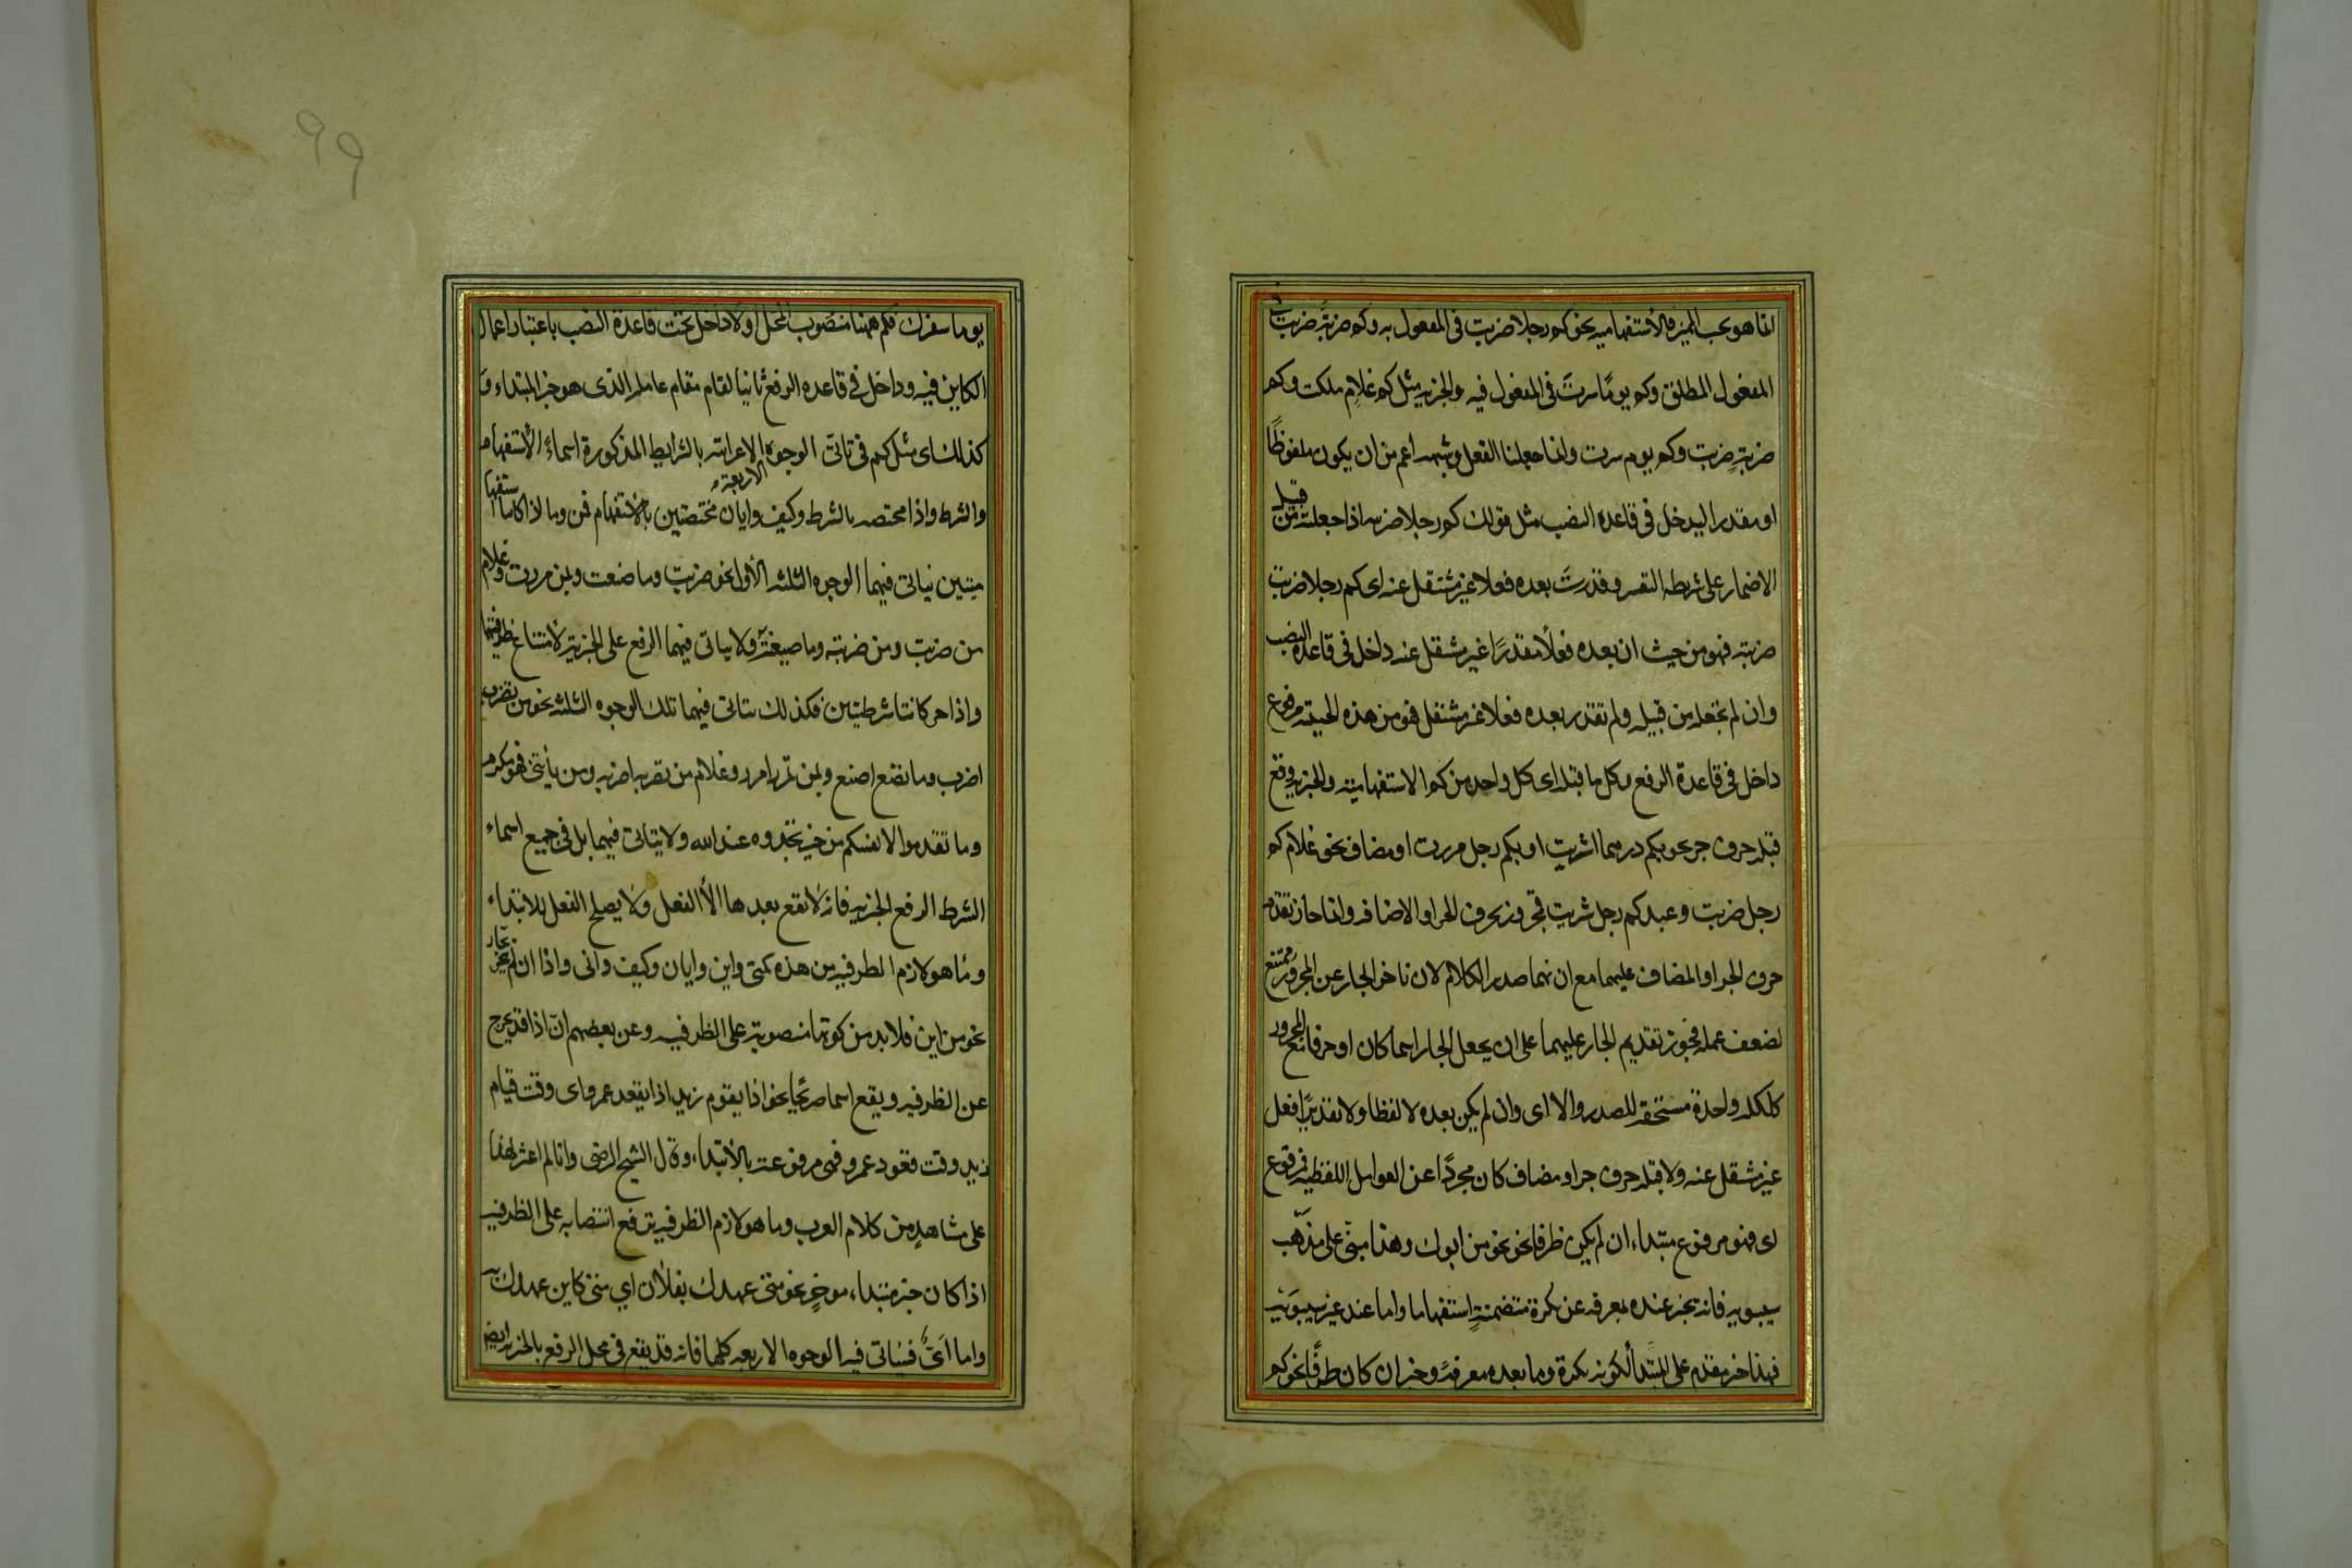 انما هو بحسب المميز فالاستفهامية نحو كم رجلا ضربت فى المفعول به وكم ضربة ضربت فى
المفعول المطلق وكم يومًا سرتَ فى المفعول فيه والخبرية مثل كم غلامِ ملكت وكم
ضربةٍ ضربت وكم يوم سرت وانما جعلنا الفعل وشبهه اعم من ان يكون ملفوظًا
او مقدرا ليدخل فى قاعدة النصب مثل قولك كم رجلا ضربته اذا جعلته من قبيل
الاضمار على شريطه التفسير وقدرتَ بعده فعلا غير مشتغل عنه اى كم رجلا ضربت
ضربته فهو من حيث ان بعده فعلًا مقدرًا غير مشتغل عنه داخل فى قاعدة النصب
وان لم تجعله من قبيله ولم تقدر بعده فعلا غير مشتغل فهو من هذه الحيثية مرفوع
داخل فى قاعدة الرفع وكل ما قبله اى كل واحد من كم الاستفهامية والخبرية وقع
قبله حرف جر نحو بكم درهما اشتريت او بكم رجل مررت او مضاف نحو غلام كم
رجل ضربت وعبد كم رجل شريت فمجرور بحرف الجر او الاضافة وانما جاز تقدم
حرف الجر او المضاف عليهما مع ان لهما صدر الكلام لان تاخر الجار عن المجرور ممتنع
لضعف عمله فجوز تقديم الجار عليهما على ان يجعل الجار اسما كان او حرفا مع المجرور
ككلمة واحدة مستحقة للصدر والا اى وان لم يكن بعده لا لفظا ولا تقديرًا فعل
غير مشتغل عنه ولا قبله حرف جر او مضاف كان مجردًا عن العوامل اللفظية فمرفوع
اى فهو مرفوع مبتداء ان لم يكن ظرفا نحو نحو من ابوك وهذا مبنى على مذهب
سيبويه فانه يخبر عنده بمعرفة عن نكرة متضمنةٍ استفهاما واما عند غير سيبويه
فهذا خبر مقدم على المبتدأ لكونه نكرة وما بعده معرفة وخبر ان كان ظرفًا نحو كم
99
يوما سفرك فكم ههنا منصوب المحل اولا داخل تحت قاعدة النصب باعتبار اعمال
الكاين فيه وداخل فى قاعدة الرفع ثانيا لقيام مقام عامله الذى هو خبر المبتداء و
كذلك اى مثل كم فى تاتى الوجوه الاربعة الاعرابية بالشرايط المذكورة اسماءُ الاستفهام
والشرط واذا مختصه بالشرط وكيف وايان مختصتين بالاستفهام فمن وما اذا كانتا استفها
ميتين يتاتى فيهما الوجوه الثلثه الاُوَل نحو من ضربت وما صنعت وبمن مررت وغلام
من ضربت ومن ضربته وما صنعته ولا يتاتى فيهما الرفع على الخبرية لامتناع ظرفيتهما
واذا كانتا شرطيتين فكذلك يتاتى فيهما تلك الوجوه الثلثه نحو من تضرب
اضرب وما تصنع اصنع وبمن تمرر امرر وغلام من تضرب اضربه ومن ياتنى فهو مكرم
وما تقدموا لانفسكم من خير تجدوه عند الله ولا يتاتى فيهما بل فى جميع اسماء
الشرط الرفع الخبرية فانه لا يقع بعدها الا الفعل ولا يصلح الفعل للابتداء
وما هو لازم الظرفية من هذه كمتى واين وايان وكيف وانى واذا ان لم ينجر بجار
نحو من اين فلا بد من كونها منصوبة على الظرفيه وعن بعضهم انّ اذا قد يخرج
عن الظرفية ويقع اسما صريحًا نحو اذا يقوم زيد اذا يقعد عمرو اى وقت قيام
زيد وقت قعود عمرو فهى مرفوعة بالابتداء وقال الشيخ الرضى وانا لم اعثر لهذا
على شاهدٍ من كلام العرب وما هو لازم الظرفية يرتفع انتصابه على الظرفية
اذا كان خبر مبتداء موخرٍ نحو متى عهدك بفلان اي متى كاين عهدك به
واما اىٌّ فيتاتى فيه الوجوه الاربعة كلها فانه قد يقع فى محل الرفع بالخبرية ايضا